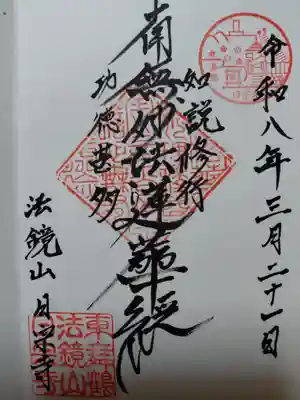 令和八年三月二十一日
如説修行
南無妙法蓮華経
功徳甚多
法鏡山 月宗寺